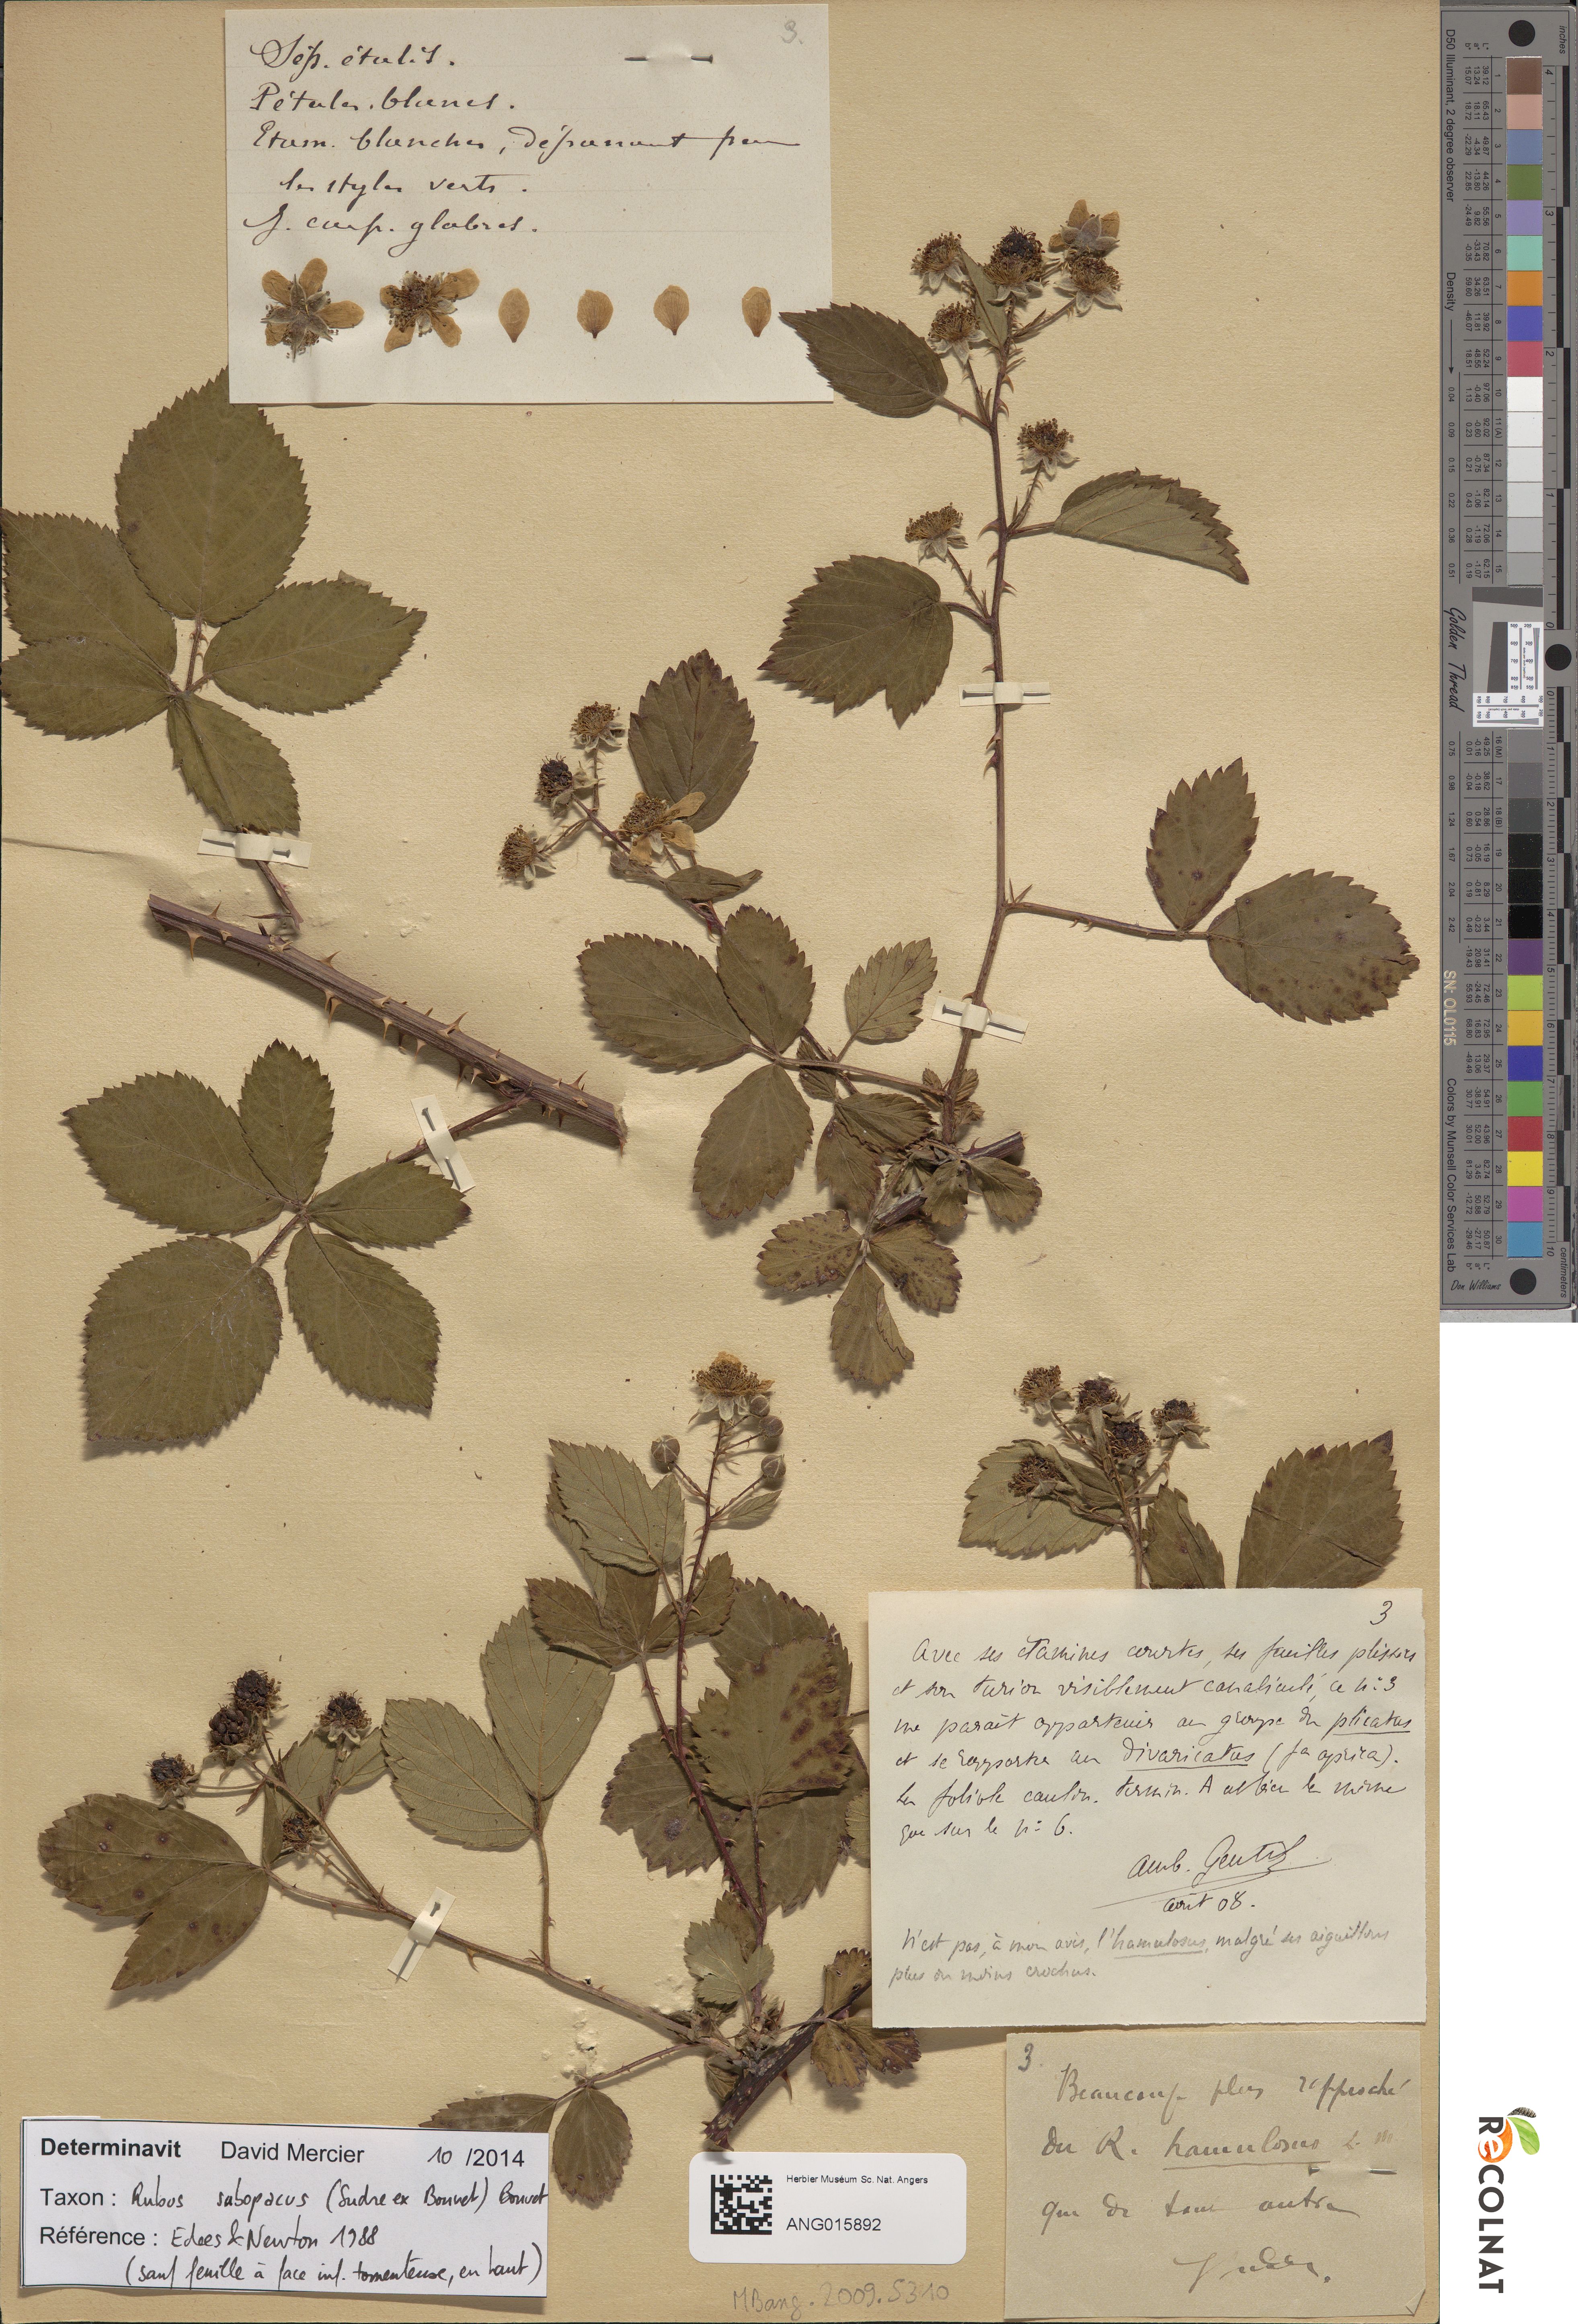 3.
Sép. étalés.
Pétales blancs.
Etam. blanches, dépassant peu
les styles verts.
J. carp. glabres.
3
Avec ses étamines courtes, ses feuilles plissées
et son turion visiblement canaliculé, ce n: 3
me parait appartenir au groupe du plicatus
et se rapporter au divaricatus (fa aprica).
La foliole caulin. termin. A est bien la même
que sur le n: 6.
Amb. Gentil
août 08.
N'est pas, à mon avis, l'hamulosus, malgré ses aiguillons
plus ou moins crochus.
3.
Beaucoup plus rapproché
du R. hamulosus L. M
que de tout autre
Sudre.
Determinavit David Mercier 10 /2014
Taxon : Rubus subopacus (Sudre ex Bouvet) Bouvet
Référence : Edees & Newton 1988
(sauf feuille à face inf. tomenteuse, en haut)
Herbier Muséum Sc. Nat. Angers
ANG015892
MBang. 2009.5310
D50 Illuminant, 2 degree observer
Density
Golden Thread
SN: OL0115
Colors by Munsell Color Services Lab
inches
centimeters
Don Williams
RECOLNAT